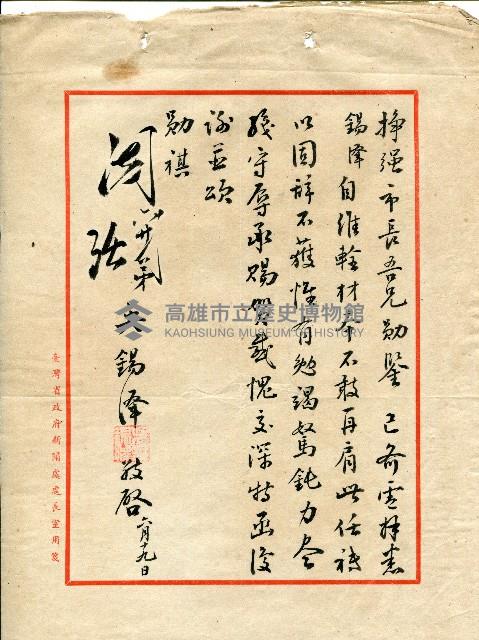 掙强市長吾兄勛鑒 已奇電拜悉
錫澤自維輇材本不敢再肩此任
以固辭不獲惟有勉竭駑鈍力
守辱承賜賀感愧交深特函復
謝並頌
勛祺
弟 錫澤 敬啓 六月十九日
臺灣省政府新聞處處長室用箋
高雄市立歷史博物館
KAOHSIUNG MUSEUM OF HISTORY